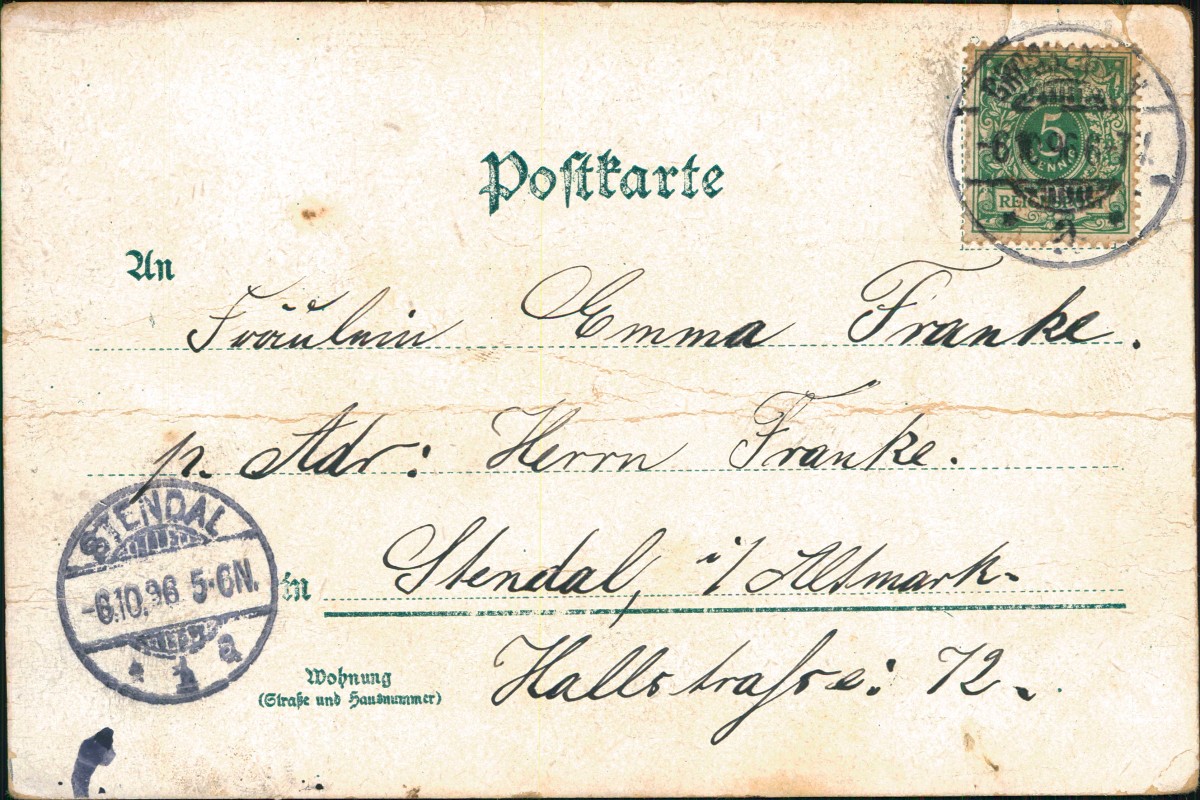 Postkarte
5
PFENNIG
REICHSPOST
-6.10.96.6-
a
An
Fräulein Emma Franke.
p. Adr: Herrn Franke.
STENDAL
-6.10.96 5-6N.
* 1 a
in Stendal, i/Altmark-
Wohnung
(Straße und Hausnummer)
Hallstraſse: 72.